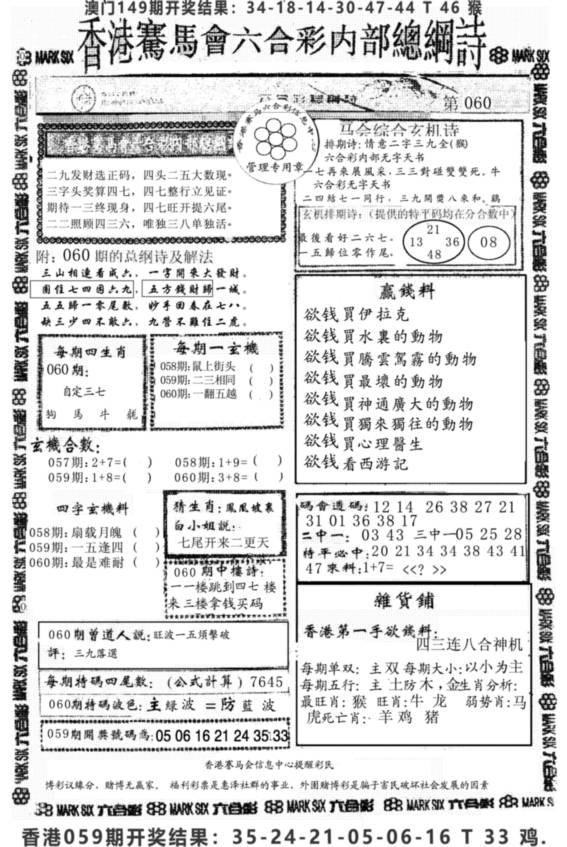 澳门149期开奖结果：34-18-14-30-47-44 T 46 猴
香港騫馬會六合彩内部總綱詩
MARK SIX
MARK SIX
第 060
香港赛马会六合彩信息中心
管理专用章
二九发财选正码，四头二五大数现。
三字头奖算四七，四七整行立见证。
期待一三终现身，四七旺开提六尾。
二二照顾四三六，唯独三八单独活。
马会综合玄机诗
排期诗：情意二字三九全(猴)
六合彩内部无字天书
一七再來展風采，三三對碰雙雙死。牛
六合彩无字天书
二四結七一同行，三九開獎八來和。鷄
玄机排期诗：(提供的特平码均在分合数中)
最後看好二六七。
一五歸位零作尾。
21
13 36
48
08
附：060期的总纲诗及解法
三山相連看成六，一字開來大發財。
圍住七四困六九，五方錢財歸一城。
五五歸一零尾數，妙手回春在七八。
缺三少四不敵六，九營不離住二虎。
每期四生肖
060期：
自定三七
狗 馬 牛 龍
每期一玄機
058期：鼠上街头 ( )
059期：二三相同 ( )
060期：一翻五越 ( )
赢錢料
欲钱買伊拉克
欲钱買水裏的動物
欲钱買騰雲駕霧的動物
欲钱買最壞的動物
欲钱買神通廣大的動物
欲钱買獨來獨往的動物
欲钱買心理醫生
欲钱看西游记
玄機合數：
057期：2+7=( ) 058期：1+9=( )
059期：1+8=( ) 060期：3+8=( )
四字玄機料
058期：扇载月魄 ( )
059期：一五逢四 ( )
060期：最是难耐 ( )
猜生肖：鳳凰披裹
白小姐説：
七尾开来二更天
060期中樓詩：
一一楼跳到四七 楼
来三楼拿钱买码
碼會透碼：12 14 26 38 27 21
31 01 36 38 17
二中一：03 43 三中一05 25 28
特平必中：20 21 34 34 38 43 41
47 來料：1+7= <<? >>
060期曾道人説：旺波一五須擊破
評：三九落選
每期特碼四尾数：(公式計算) 7645
060期特碼波色：主綠波 =防藍波
059期開奬號碼為：05 06 16 21 24 35:33
雜貨鋪
香港第一手欲錢料：
四三连八合神机
每期单双：主双 每期大小：以小为主
每期五行：主土防木，金生肖分析：
最旺肖：猴 旺肖：牛 龙 弱势肖：马
虎死亡肖：羊 鸡 猪
香港赛马会信息中心提醒彩民
博彩议缘分，赌博无赢家。福利彩票是惠泽社群的事业，外围赌博彩是骗子害民破坏社会发展的因素
MARK SIX 六合彩 MARK SIX 六合彩 MARK SIX 六合彩 MARK SIX 六合彩 MARK SIX
香港059期开奖结果：35-24-21-05-06-16 T 33 鸡.